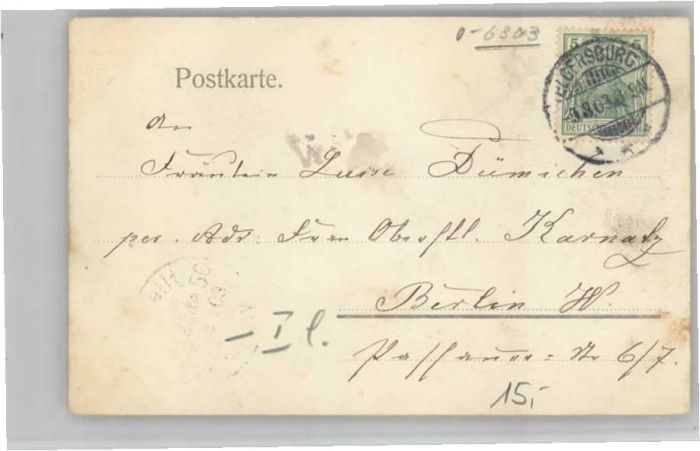 0-6303
5 5
ELGERSBURG
DEUTSCHES REICH
Postkarte.
An
Fräulein Luise Dümichen
per. Adr. Frau Oberstl. Karnatz
Berlin W.
Passauer-Str 6/7.
- I l.
15,-